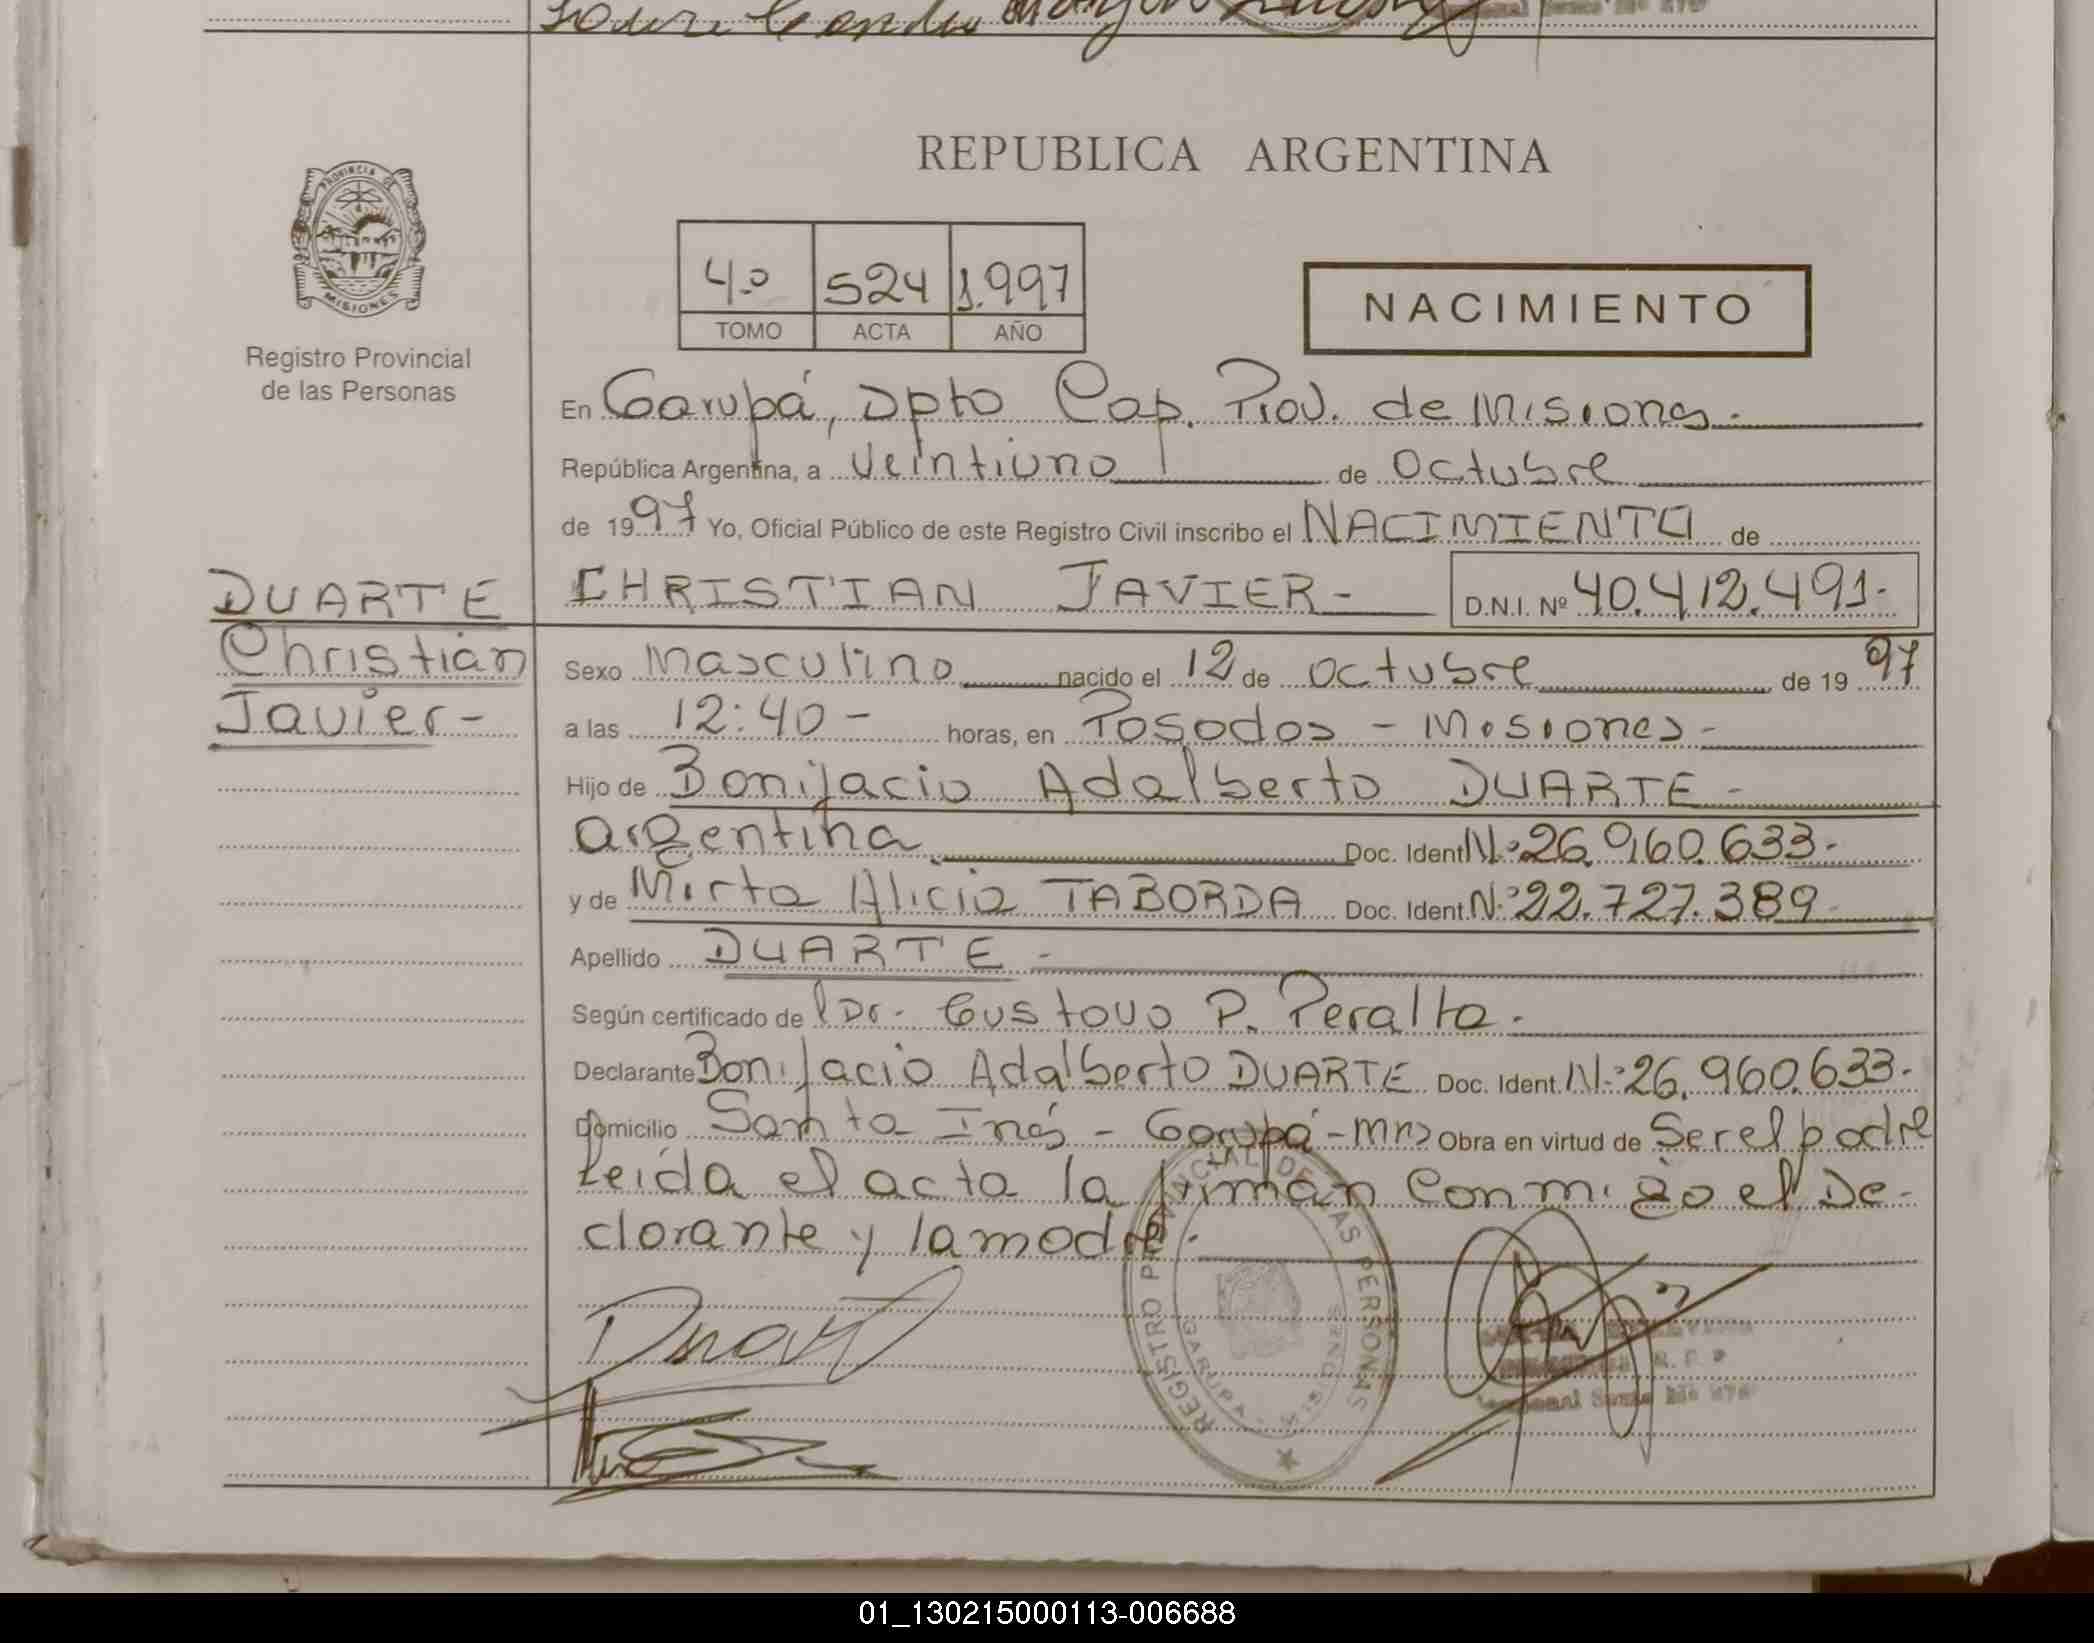 REPUBLICA ARGENTINA
PROVINCIA DE
MISIONES
Registro Provincial
de las Personas
4º 524 1.997
TOMO ACTA AÑO
NACIMIENTO
En Garupá, Dpto Cap. Prov. de Misiones.
República Argentina, a Veintiuno de Octubre
de 1997 Yo, Oficial Público de este Registro Civil inscribo el NACIMIENTO de
DUARTE
Christian
Javier-
CHRISTIAN JAVIER- D.N.I. Nº 40.412.491.
Sexo Masculino nacido el 12 de Octubre de 1997
a las 12:40 - horas, en Posadas - Misiones -
Hijo de Bonifacio Adalberto DUARTE -
argentina Doc. Ident Nº 26.960.633.
y de Mirta Alicia TABORDA Doc. Ident. Nº 22.727.389
Apellido DUARTE -
Según certificado de l Dr. Gustavo P. Peralta.
Declarante Bonifacio Adalberto DUARTE Doc. Ident. Nº 26.960.633.
Domicilio Santa Inés - Garupá - Mnes Obra en virtud de Ser el padre
Leída el acta la firman conmigo el De-
clarante y la madre.
REGISTRO PROVINCIAL DE LAS PERSONAS
GARUPA - MISIONES
Duart
01_130215000113-006688